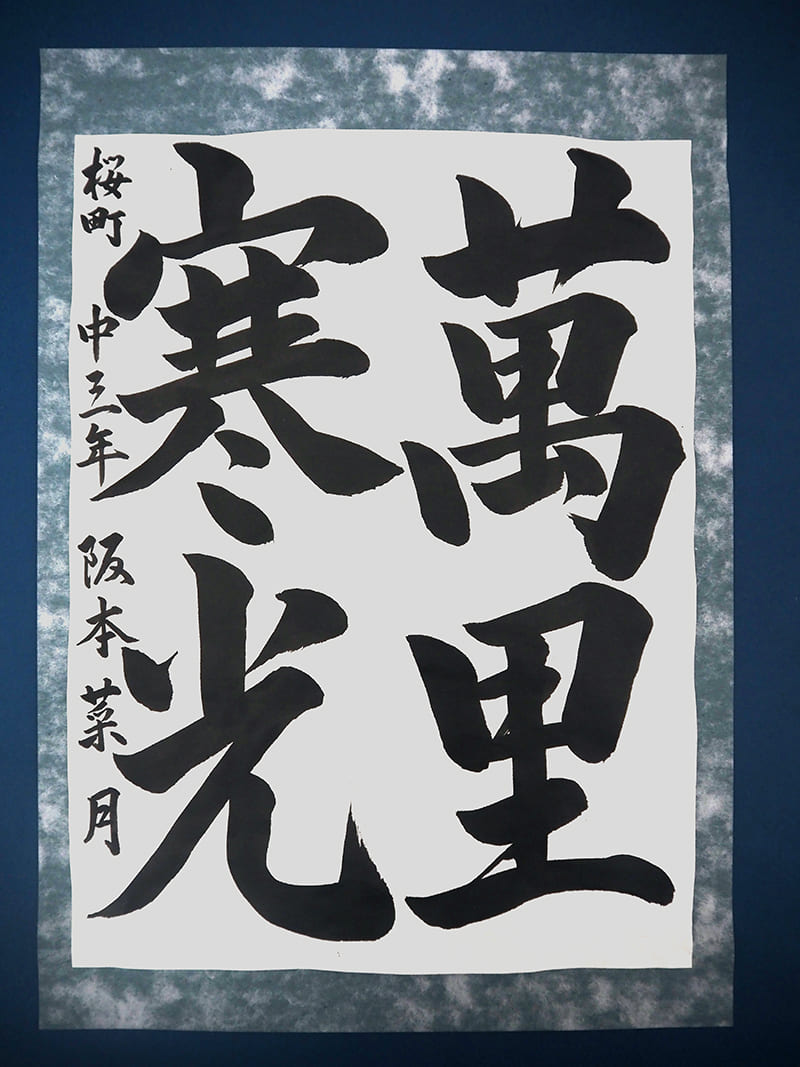 萬里
寒光
桜町 中三年 阪本菜月